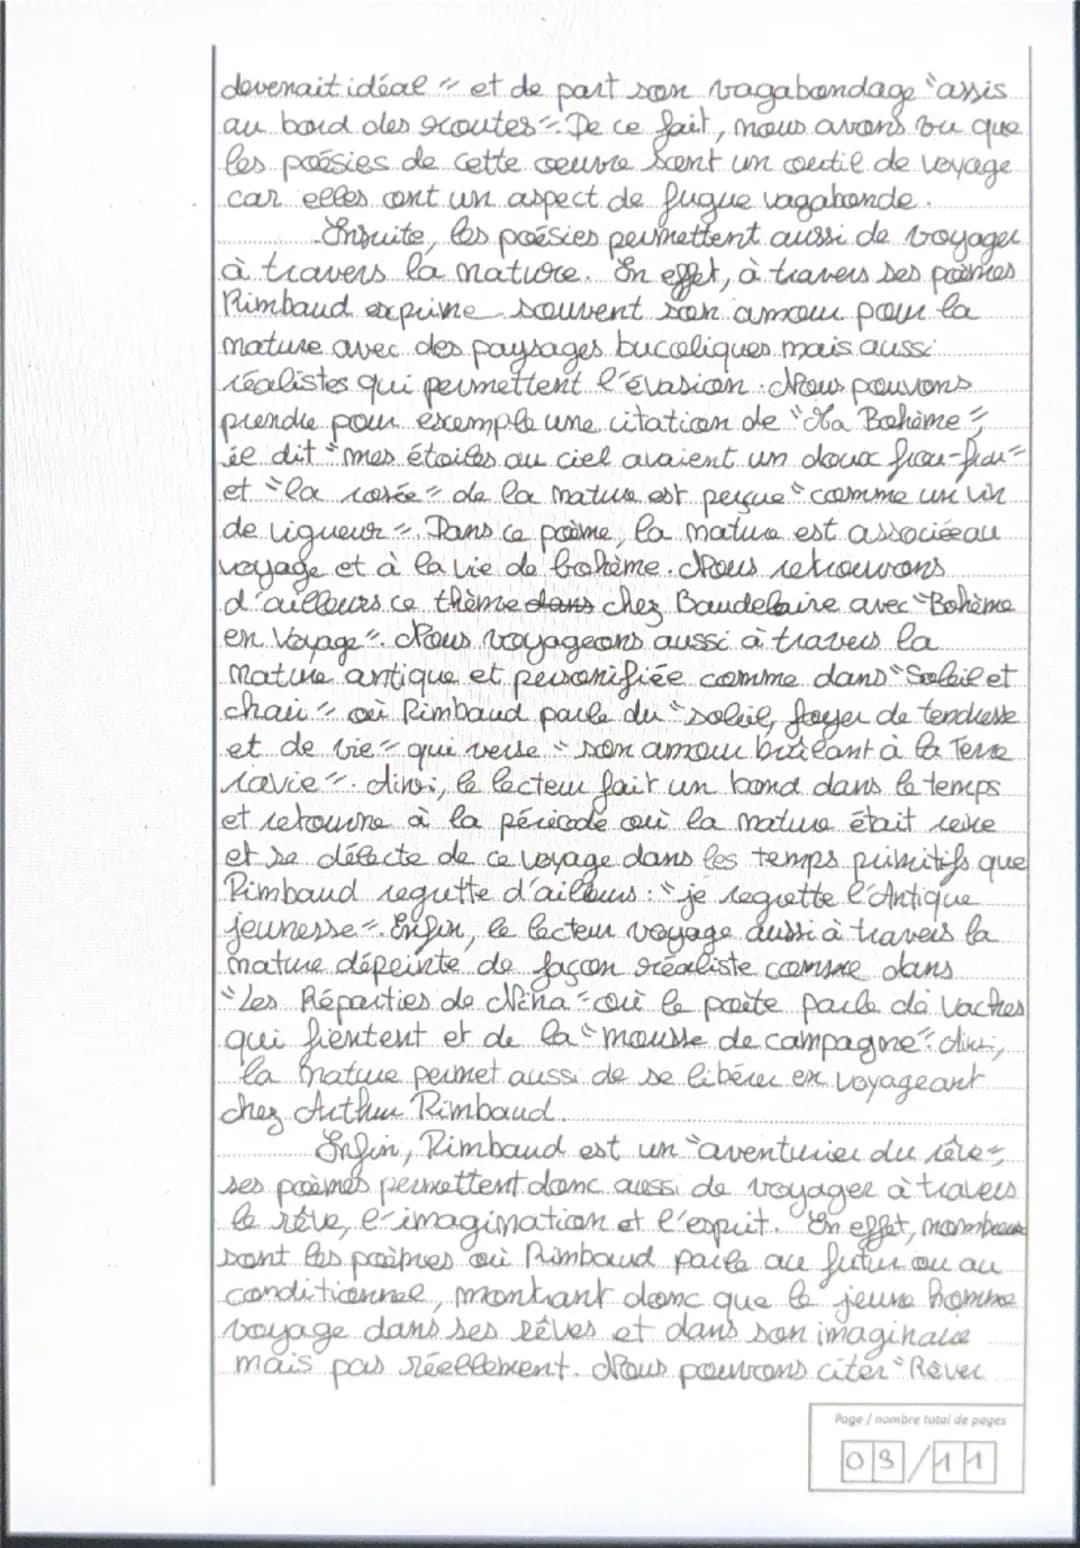 devenait idéal" et de part son vagabondage "assis
au bord des routes". De ce fait, nous avons vu que
les poésies de cette oeuvre sont un outil de voyage
car elles ont un aspect de fugue vagabonde.
Ensuite, les poésies permettent aussi de voyager
à travers la nature. En effet, à travers ses poèmes
Rimbaud exprime souvent son amour pour la
nature avec des paysages bucoliques mais aussi
réalistes qui permettent l'évasion. Nous pouvons
prendre pour exemple une citation de "Ma Bohème",
il dit "mes étoiles au ciel avaient un doux frou-frou"
et "la rosée" de la nature est perçue "comme un vin
de vigueur". Dans ce poème, la nature est associée au
voyage et à la vie de bohème. Nous retrouvons
d'ailleurs ce thème dans chez Baudelaire avec "Bohème
en Voyage". Nous voyageons aussi à travers la
nature antique et personifiée comme dans "Soleil et
chair" où Rimbaud parle du "soleil, foyer de tendresse
et de vie" qui verse "son amour brûlant à la Terre
ravie". Ainsi, le lecteur fait un bond dans le temps
et retourne à la période où la nature était reine
et se délecte de ce voyage dans les temps primitifs que
Rimbaud regrette d'ailleurs : "je regrette l'Antique
jeunesse". Enfin, le lecteur voyage aussi à travers la
nature dépeinte de façon réaliste comme dans
"Les Réparties de Nina" où le poète parle de vaches
qui fientent et de la "mousse de campagne". Ainsi,
la nature permet aussi de se libérer en voyageant
chez Arthur Rimbaud.
Enfin, Rimbaud est un "aventurier du rêve",
ses poèmes permettent donc aussi de voyager à travers
le rêve, l'imagination et l'esprit. En effet, nombreux
sont les poèmes où Rimbaud parle au futur ou au
conditionnel, montrant donc que le jeune homme
voyage dans ses rêves et dans son imaginaire
mais pas réellement. Nous pouvons citer "Rêver
Page / nombre total de pages
03/11